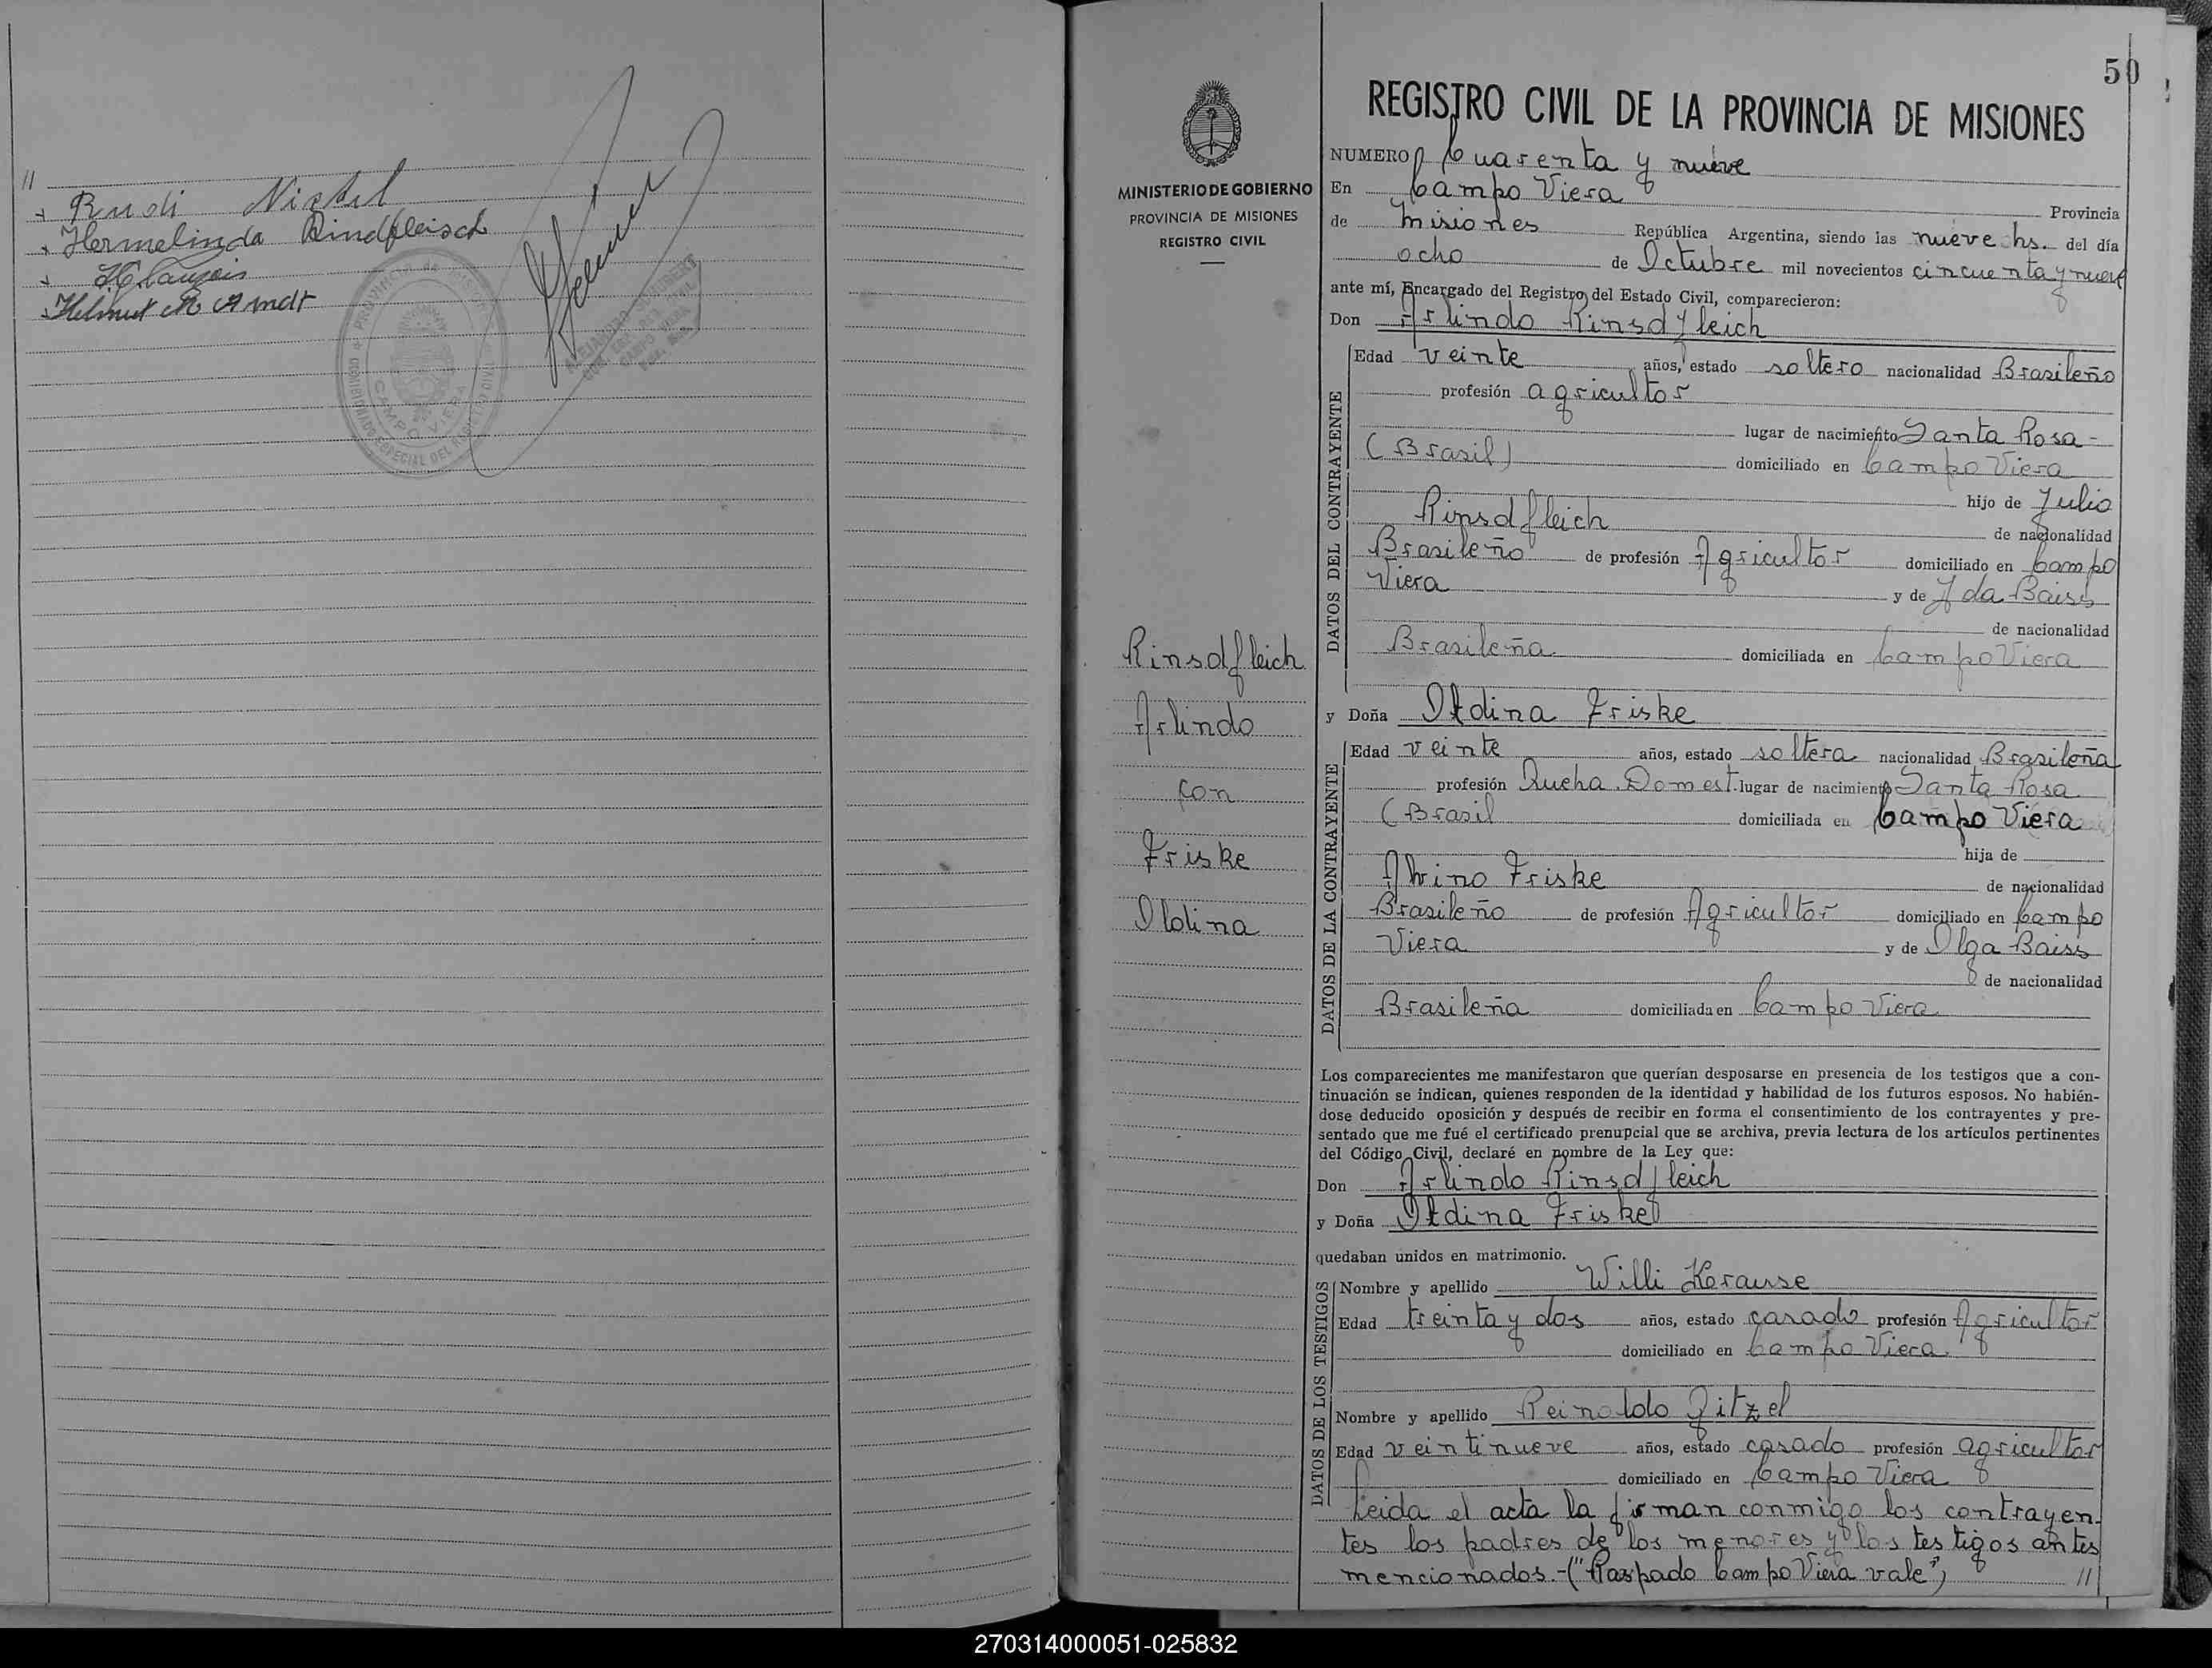 //
Rudi Nistel
Hermelinda Rindfleisch
Helmut A Arndt
PROVINCIA DE MISIONES
CAMPO VIERA
50
REGISTRO CIVIL DE LA PROVINCIA DE MISIONES
MINISTERIO DE GOBIERNO
PROVINCIA DE MISIONES
REGISTRO CIVIL
NUMERO Cuarenta y nueve
En Campo Viera Provincia
de Misiones República Argentina, siendo las nueve hs. del día
ocho de Octubre mil novecientos cincuenta y nueve
ante mí, Encargado del Registro del Estado Civil, comparecieron:
Don Arlindo Rinsdfleich
DATOS DEL CONTRAYENTE
Edad veinte años, estado soltero nacionalidad Brasileño
profesión agricultor
lugar de nacimiento Santa Rosa -
(Brasil) domiciliado en Campo Viera
hijo de Julio
Rinsdfleich de nacionalidad
Brasileño de profesión Agricultor domiciliado en Campo
Viera y de Ida Baiss
de nacionalidad
Brasileña domiciliada en Campo Viera
Rinsdfleich
Arlindo
con
Friske
Ildina
y Doña Ildina Friske
DATOS DE LA CONTRAYENTE
Edad veinte años, estado soltera nacionalidad Brasileña
profesión Queha. Domest. lugar de nacimiento Santa Rosa
(Brasil domiciliada en Campo Viera
hija de
Alvino Friske de nacionalidad
Brasileño de profesión Agricultor domiciliado en Campo
Viera y de Olga Baiss
de nacionalidad
Brasileña domiciliada en Campo Viera
Los comparecientes me manifestaron que querían desposarse en presencia de los testigos que a con-
tinuación se indican, quienes responden de la identidad y habilidad de los futuros esposos. No habién-
dose deducido oposición y después de recibir en forma el consentimiento de los contrayentes y pre-
sentado que me fué el certificado prenupcial que se archiva, previa lectura de los artículos pertinentes
del Código Civil, declaré en nombre de la Ley que:
Don Arlindo Rinsdfleich
y Doña Ildina Friske
quedaban unidos en matrimonio.
DATOS DE LOS TESTIGOS
Nombre y apellido Willi Krause
Edad treinta y dos años, estado casado profesión Agricultor
domiciliado en Campo Viera.
Nombre y apellido Reinoldo Zitzel
Edad veintinueve años, estado casado profesión agricultor
domiciliado en Campo Viera
Leida el acta la firman conmigo los contrayen-
tes los padres de los menores y los testigos antes
mencionados.-("Raspado Campo Viera vale") //
270314000051-025832